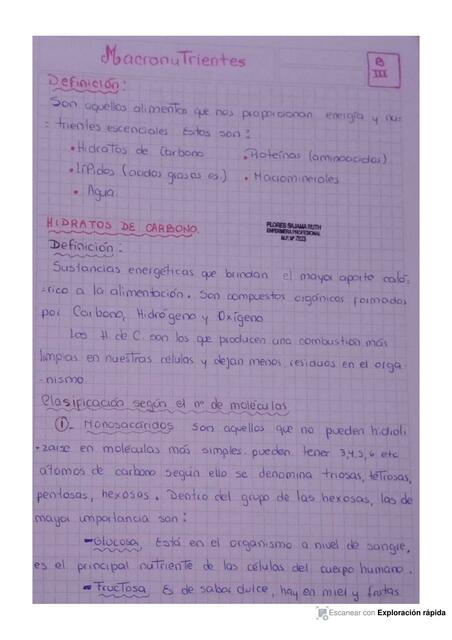 Macronutrientes
B
III
Definición:
Son aquellos alimentos que nos proporcionan energía y nu-
-trientes escenciales Estos son:
• Hidratos de Carbono • Proteínas (aminoacidos)
• Lípidos (acidos grasos es.) • Macrominerales
• Agua
HIDRATOS DE CARBONO.
FLORES BAJAMA RUTH
ENFERMERA PROFESIONAL
M.P. Nº 7023
Definición:
Sustancias energéticas que brindan el mayor aporte caló-
-rico a la alimentación. Son compuestos orgánicos formados
por Carbono, Hidrógeno y Oxígeno
Los H. de C. son los que producen una combustión más
limpias en nuestras células y dejan menos residuos en el orga-
-nismo
Clasificación según el nº de moléculas
①- Monosacáridos son aquellos que no pueden hidroli
-zarse en moléculas más simples. pueden tener 3,4,5,6 etc
atomos de carbono según ello se denomina triosas, tetrosas,
pentosas, hexosas. Dentro del grupo de las hexosas, las de
mayor importancia son:
- Glucosa Está en el organismo a nivel de sangre,
es el principal nutriente de las células del cuerpo humano.
- Fructosa Es de sabor dulce, hay en miel y frutas
Escanear con Exploración rápida